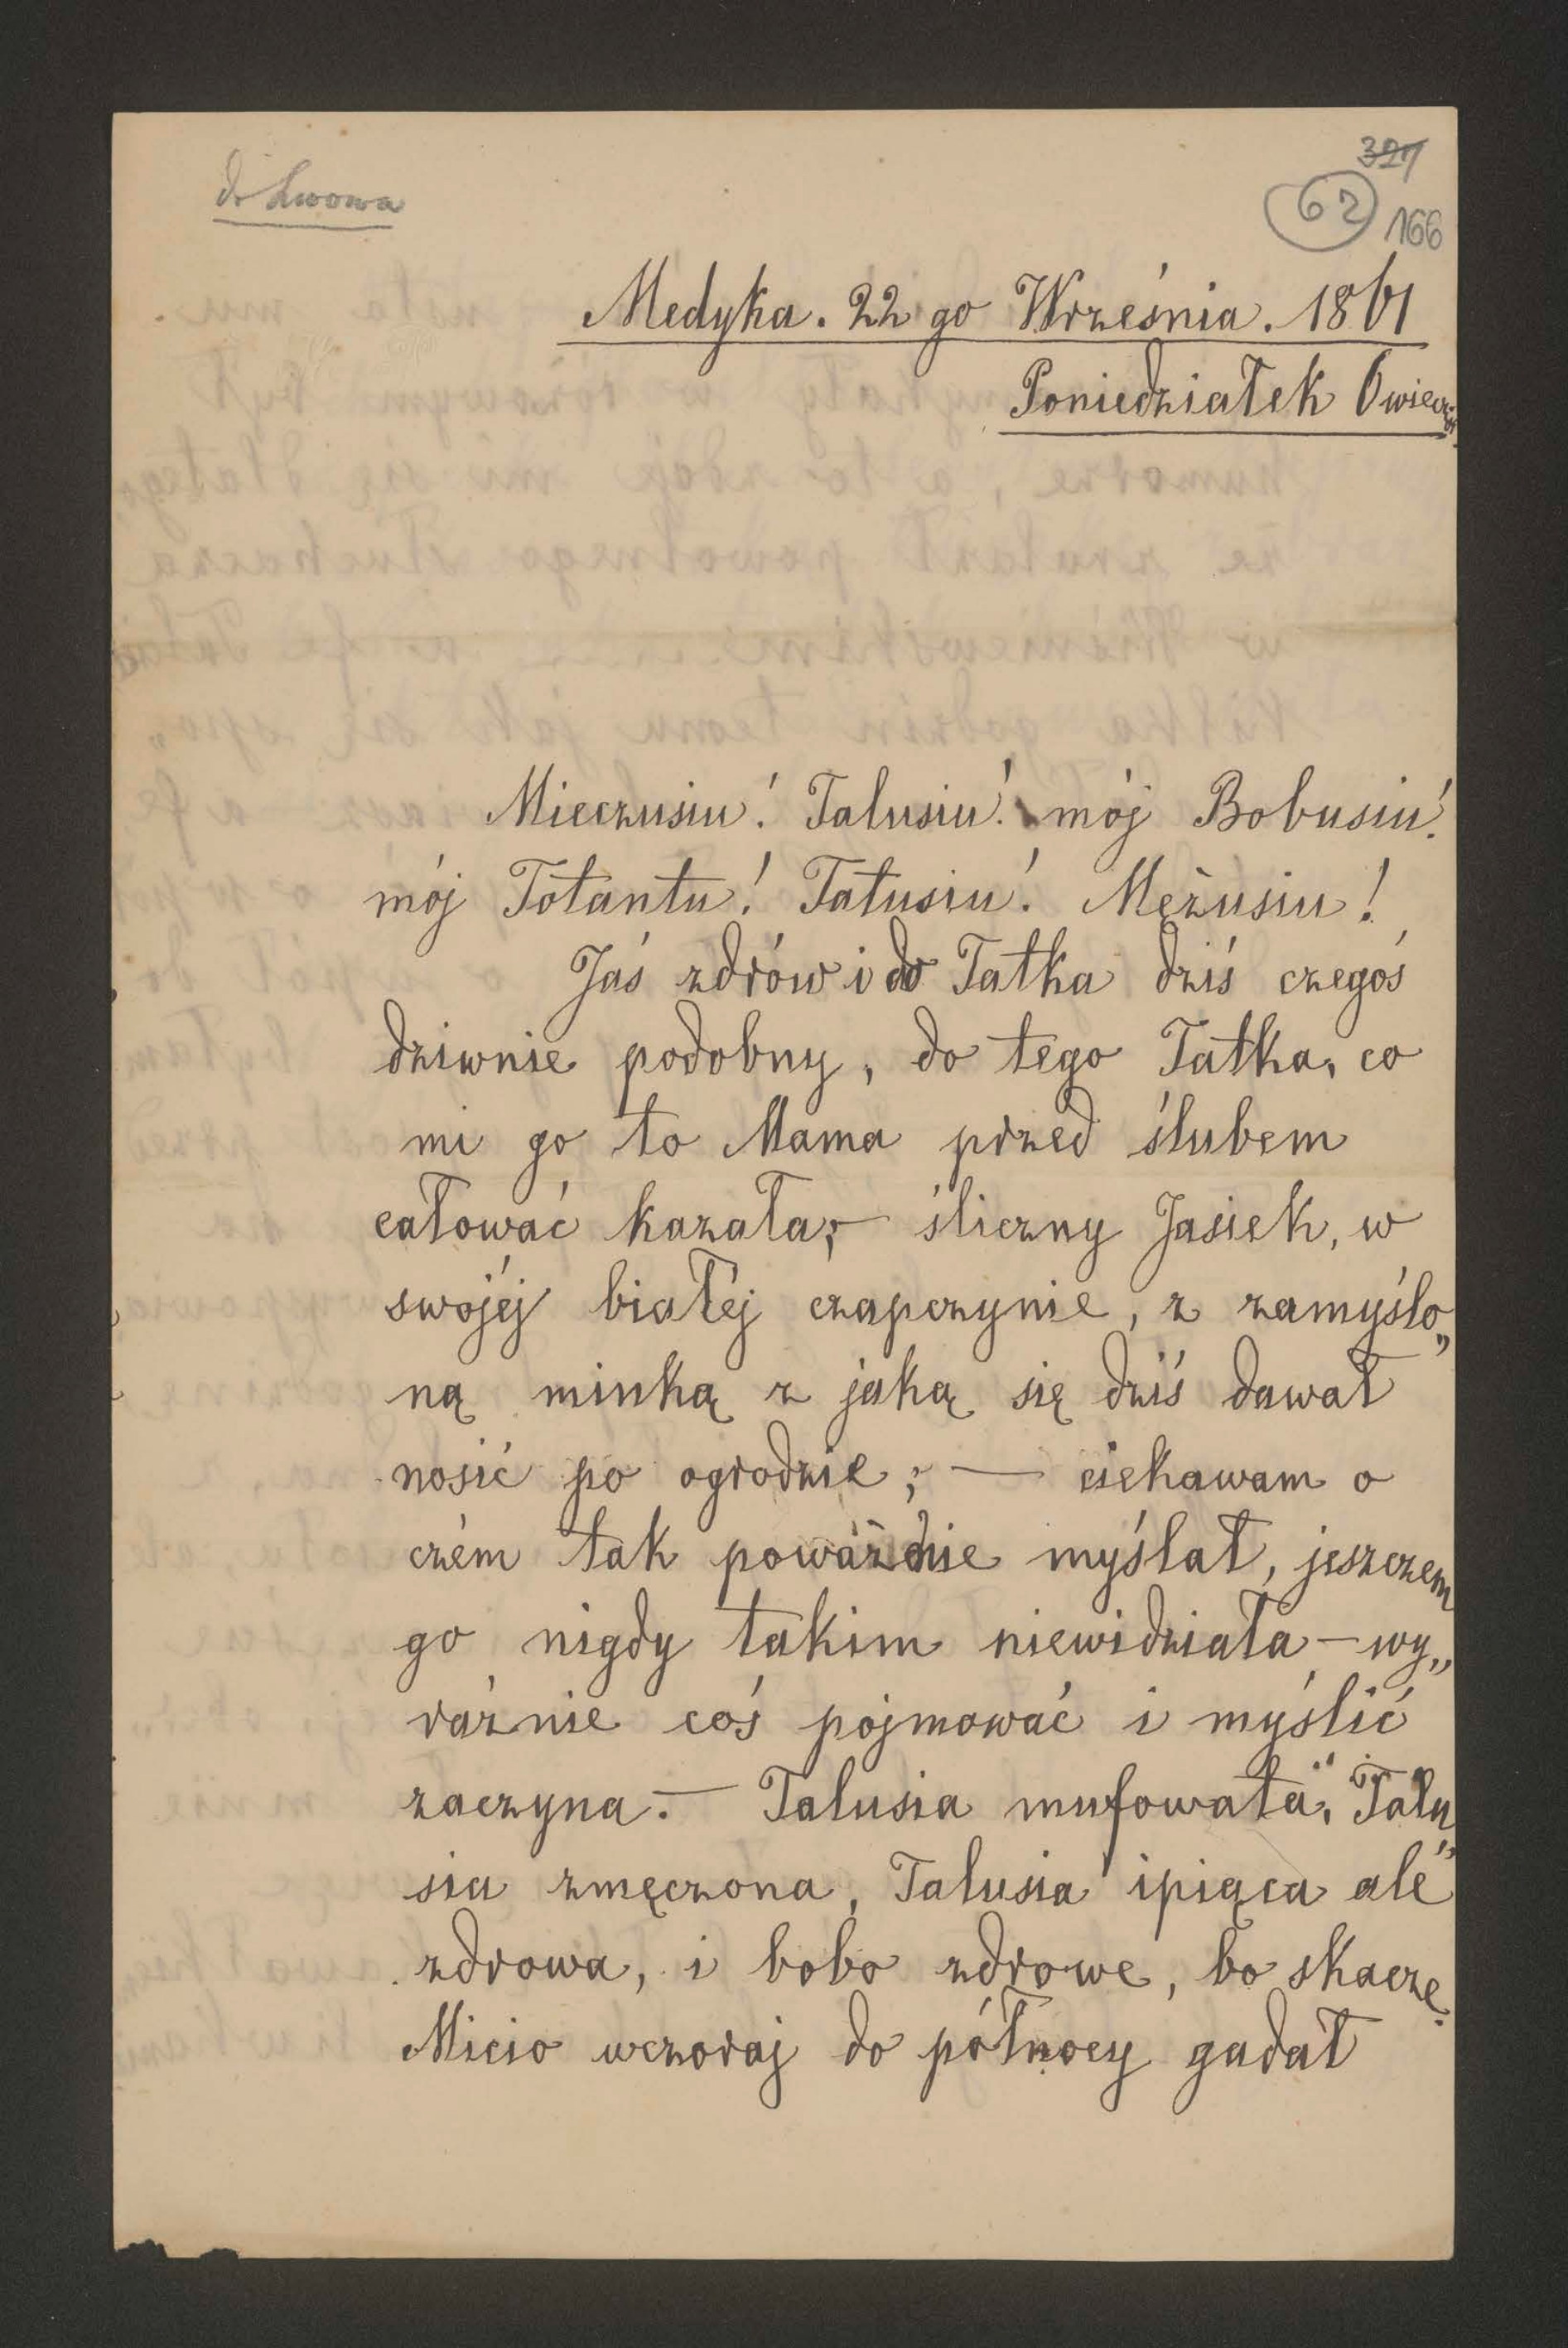 do Lwowa
321
62 166
Medyka. 22 go Września. 1861
Poniedziałek 6 wieczór
Mieczusiu! Talusiu! mój Bobusiu!
mój Totantu! Tatusiu! Mężusiu!
Jaś zdrów i do Tatka dziś czegoś
dziwnie podobny, do tego Tatka, co
mi go to Mama przed ślubem
całować kazała; — śliczny Jasiek, w
swojéj białéj czapczynie, z zamyślo„
ną minką z jaką się dziś dawał
nosić po ogrodzie; — ciekawam o
czém tak poważnie myślał, jeszczem
go nigdy takim niewidziała — wy„
raźnie coś pojmować i myślić
zaczyna. — Talusia mufowata, Talu„
sia zmęczona, Talusia śpiąca ale
zdrowa, i bobo zdrowe, bo skacze.
Micio wczoraj do północy gadał